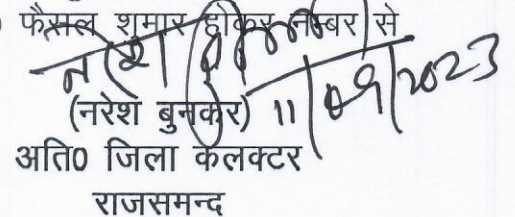 फैसल शुमार होकर नम्बर से
11/09/2023
(नरेश बुनकर)
अति0 जिला कलक्टर
राजसमन्द